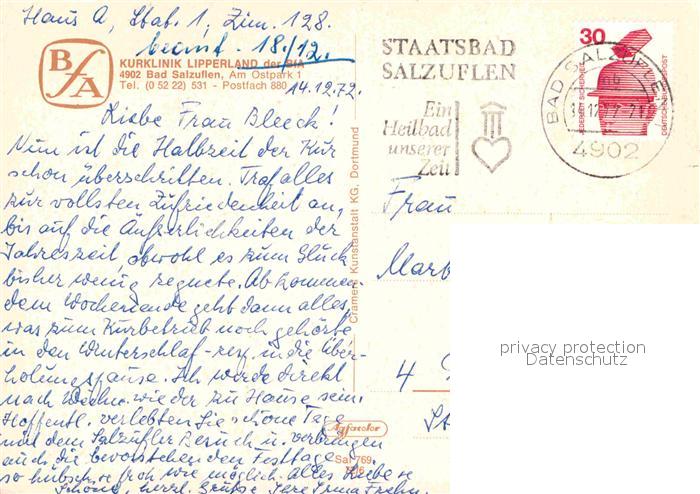 Haus A, Stat. 1, Zim. 128.
beantw. 18./12.
BfA
KURKLINIK LIPPERLAND der BfA
4902 Bad Salzuflen, Am Ostpark 1
Tel. (0 52 22) 531 - Postfach 880
14.12.72.
Liebe Frau Bleeck!
Nun ist die Halbzeit der Kur
schon überschritten. Traf alles
zur vollsten Zufriedenheit an,
bis auf die Äußerlichkeiten der
Jahreszeit, obwohl es zum Glück
bisher wenig regnete. Ab kommen-
dem Wochenende geht dann alles,
was zum Kurbetrieb noch gehörte
in den Winterschlaf - resp. in die Über-
holungspause. Ich werde direkt
nach Weihn. wieder zu Hause sein.
Hoffentl. verlebten Sie schöne Tage
mit dem Salzufler Besuch u. verbringen
auch die bevorstehenden Festtage
so hübsch u. froh wie möglich. Alles Liebe u.
schöne, herzl. Grüße Ihre Irma
Cramers Kunstanstalt KG, Dortmund
Agfacolor
Sal 769
STAATSBAD
SALZUFLEN
Ein
Heilbad
unserer
Zeit
BAD SALZUFLEN
4902
30
JEDERZEIT SICHERHEIT
DEUTSCHE BUNDESPOST
Frau
Marb
4
St
privacy protection
Datenschutz